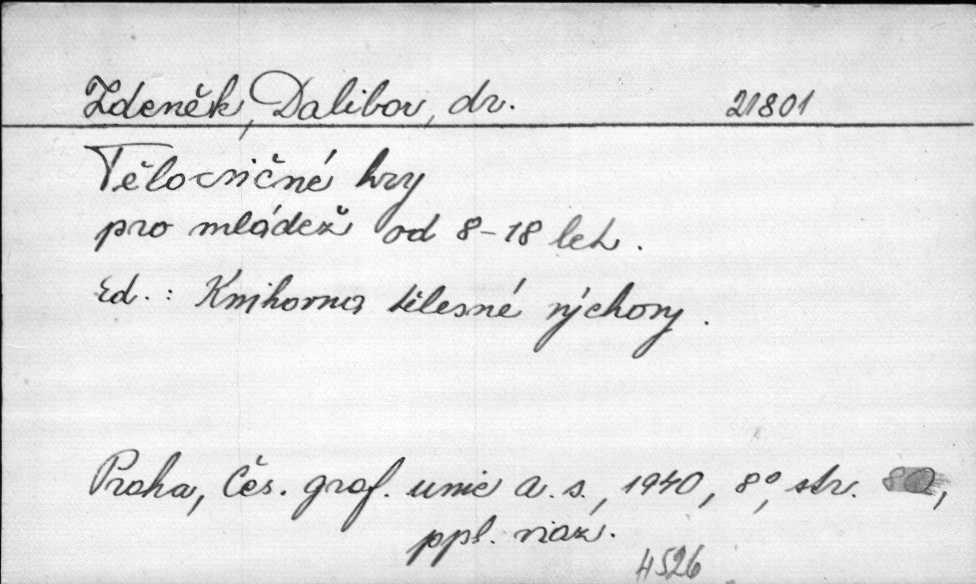 Zdeněk, Dalibor, dr. 21801
Tělocvičné hry
pro mládež od 8-18 let.
Ed.: Knihovna tělesné výchovy.
Praha, Čes. graf. unie a. s., 1940, 8°, str. 80,
ppl. viaz.
H526